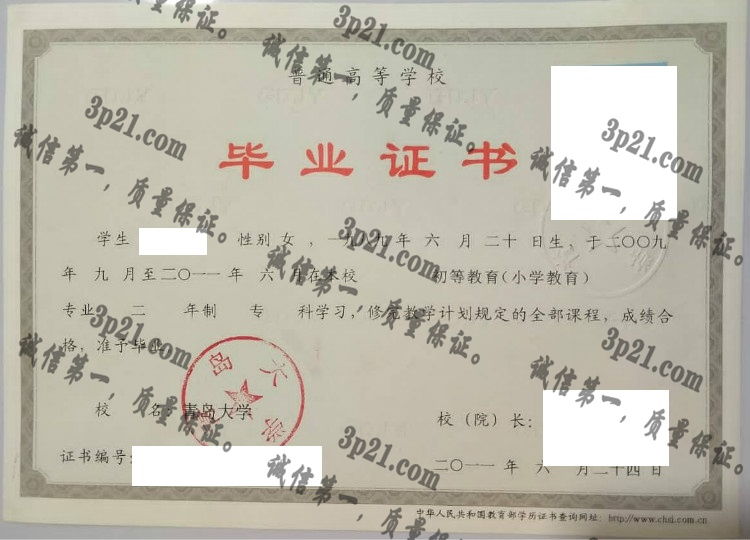 普通高等学校
毕业证书
学生 性别 女 ，一九八九年 六 月 二十 日生，于二〇〇九
年 九 月至二〇一一 年 六 月在本校 初等教育(小学教育)
专业 二 年制 专 科学习，修完教学计划规定的全部课程，成绩合
格，准予毕业。
岛大学
校 名：青岛大学
校（院）长：
证书编号：
二〇一一 年 六 月二十四日
中华人民共和国教育部学历证书查询网址：http://www.chsi.com.cn
质量保证。
3p21.com
诚信第一，质量保证。
3p21.com
诚信第一，质量保证。
诚信第一，质量保证。
3p21.com
诚信第一，质量保证。
3p21.com
诚信第一，质量保证。
3p21.com
诚信第一，质量保证。
3p21.com
诚信第一，质量